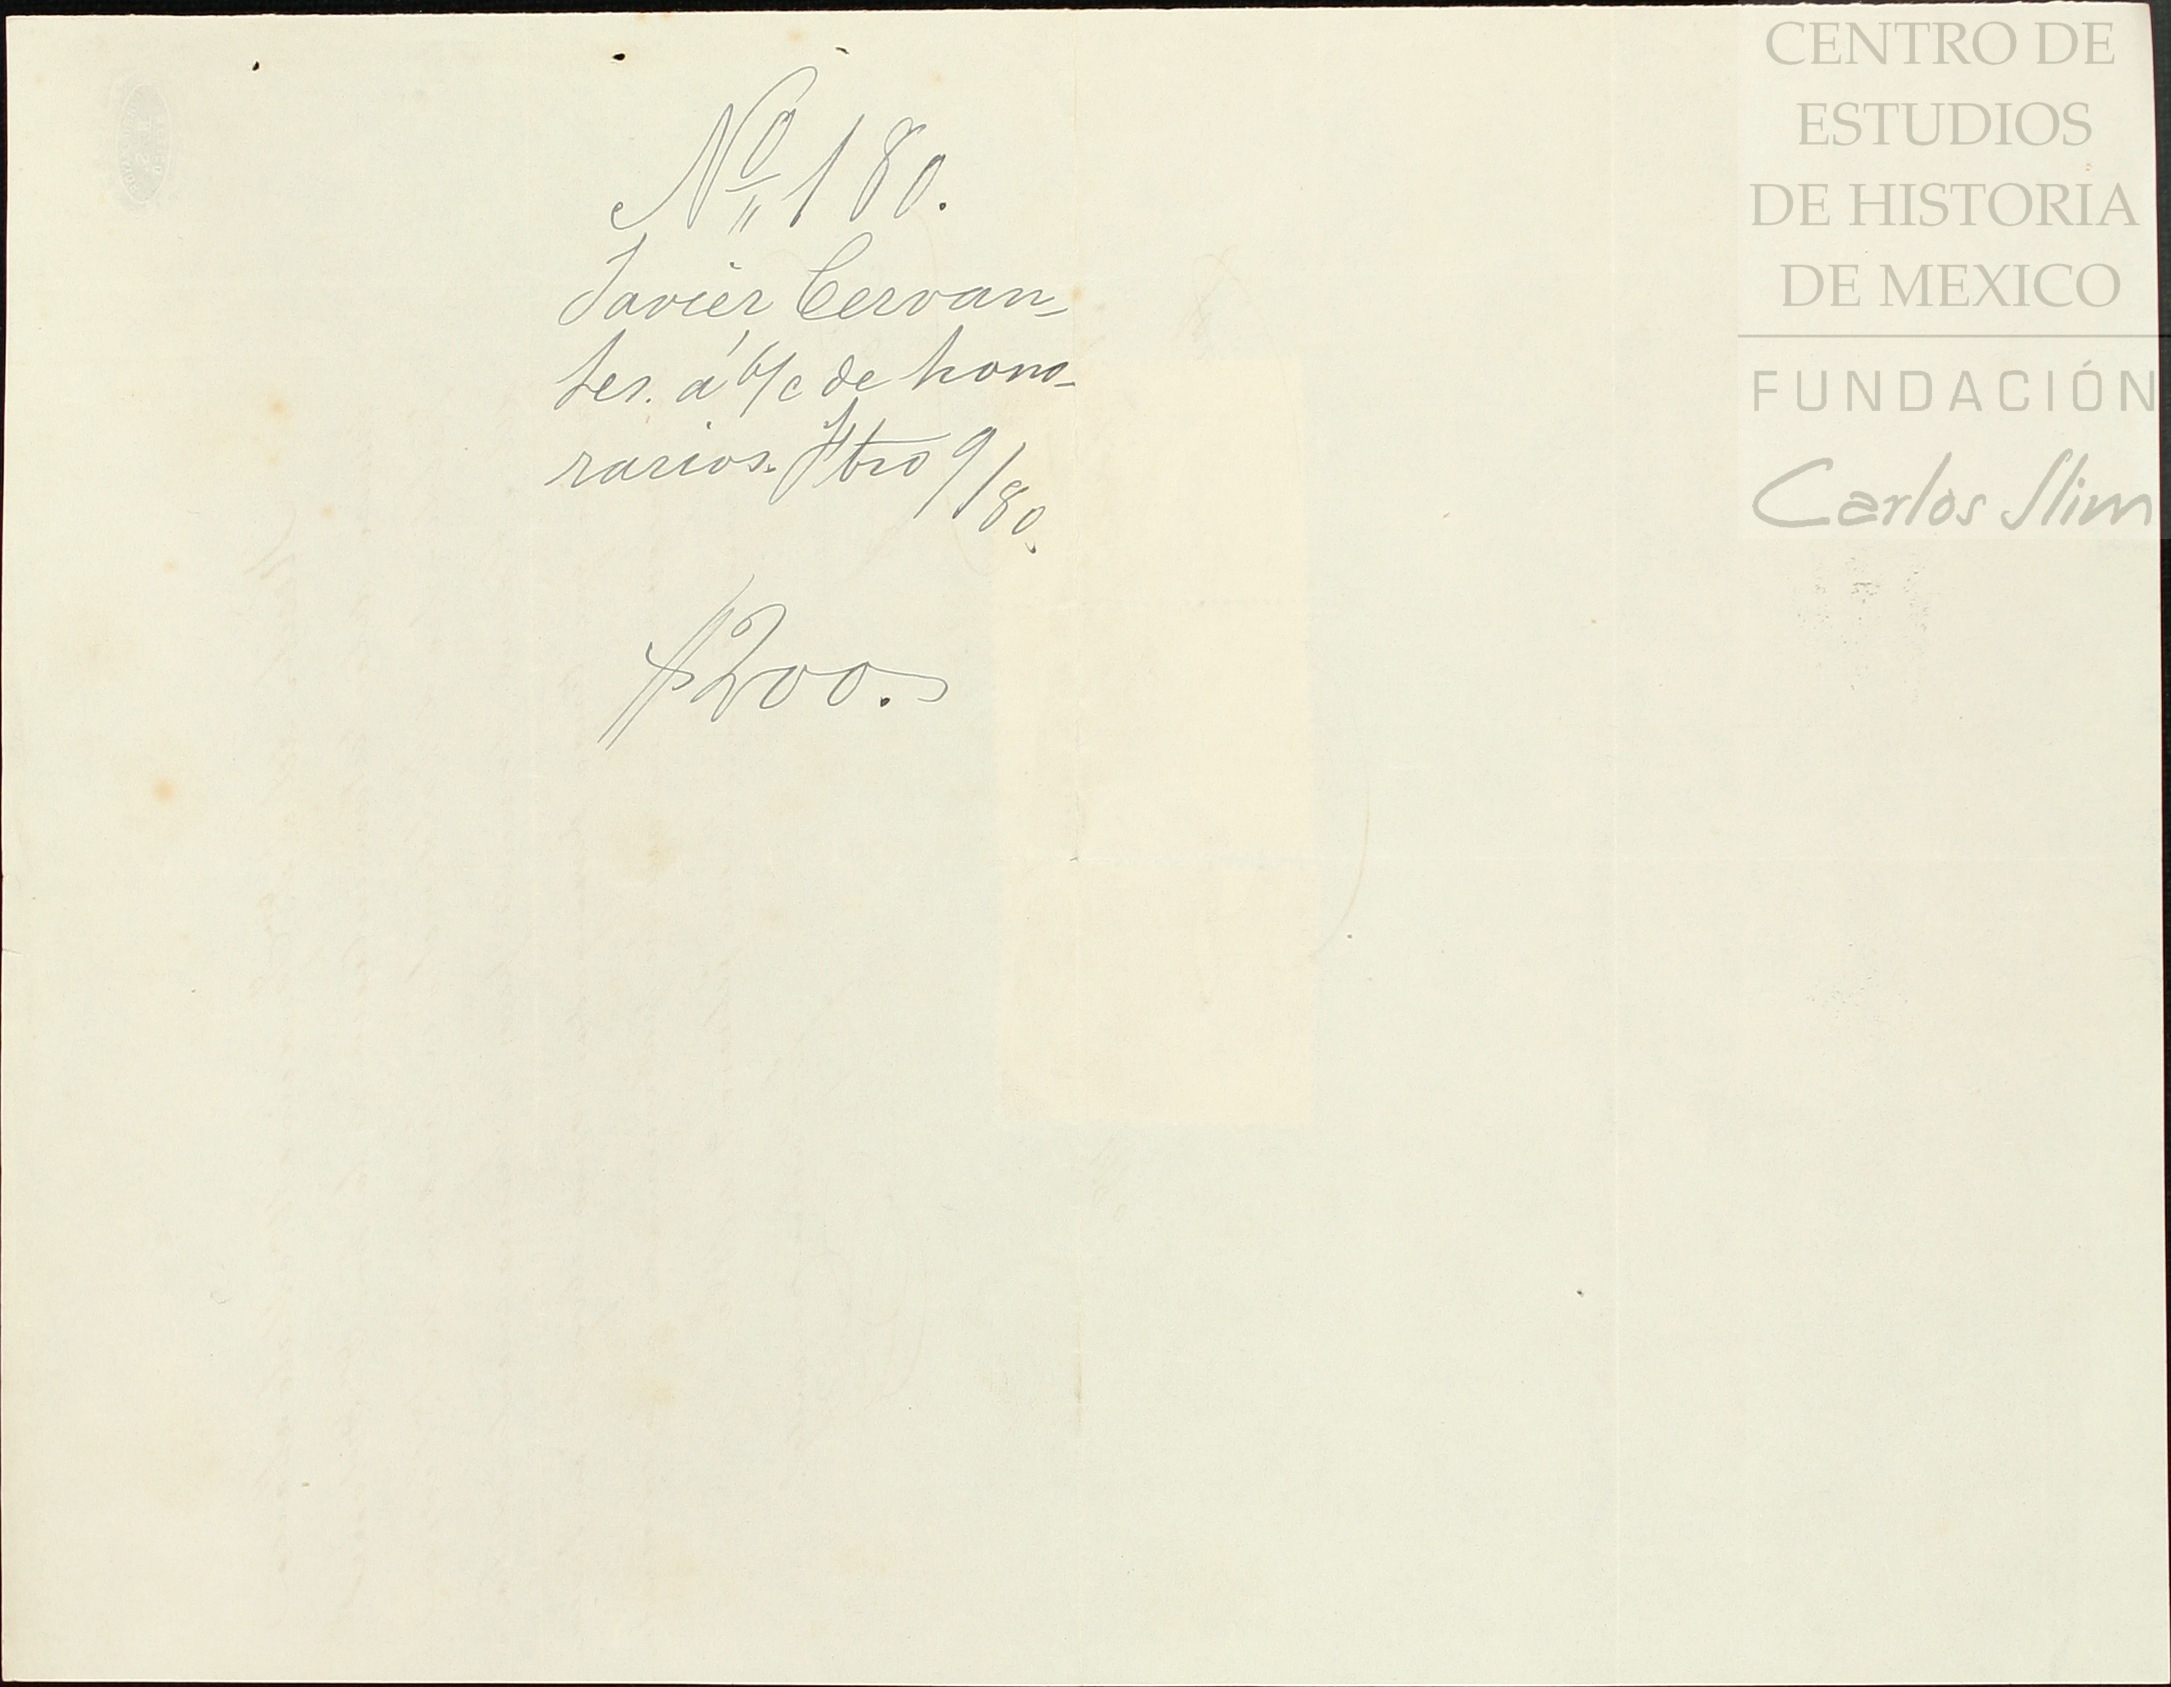 Nº 180.
Javier Cervan-
tes. á b/c de hono-
rarios. 9/80.
$200.
CENTRO DE
ESTUDIOS
DE HISTORIA
DE MEXICO
FUNDACIÓN
Carlos Slim